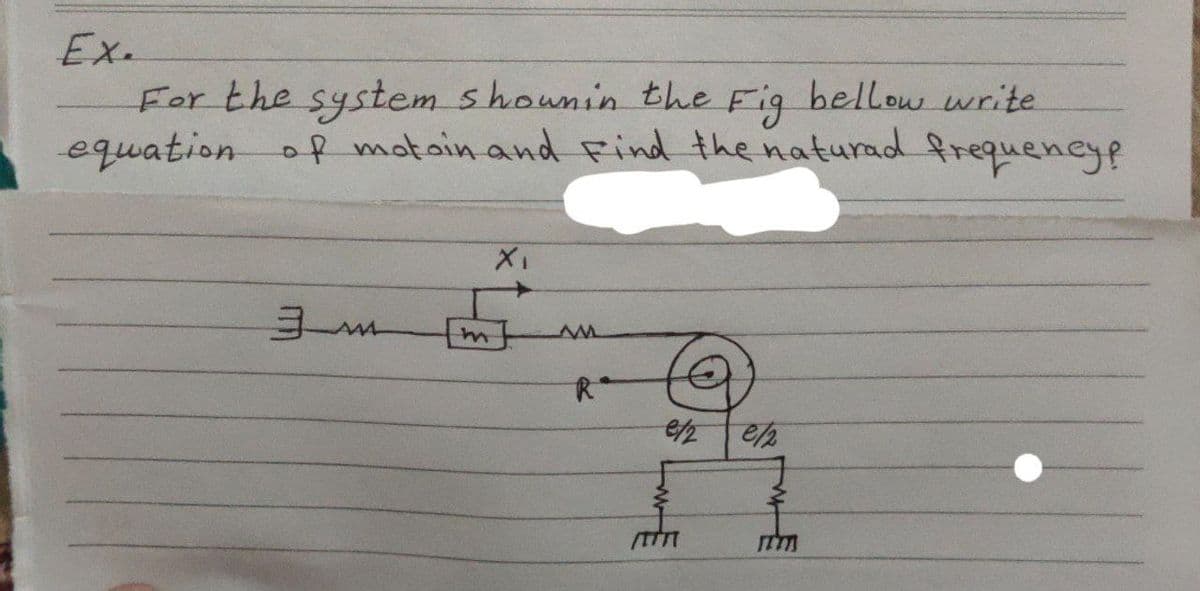 Ex.
For the system shownin the Fig bellow write
equation of motoin and Find the naturad frequeneye
X1
m
R
e/2 e/2